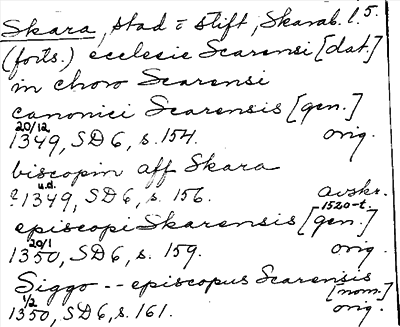 Skara, stad o stift, Skarab. l. 5.
(forts.) ecclesie Scarensi [dat.]
in choro Scarensi
canonici Scarensis [gen.]
20/12
1349, SD 6, s. 154. orig.
biscopin aff Skara
u.d.
? 1349, SD 6, s. 156. avskr.
1520-t.
episcopi Skarensis [gen.]
20/1
1350, SD 6, s. 159. orig.
Siggo -- episcopus Scarensis
[nom.]
1/2
1350, SD 6, s. 161. orig.